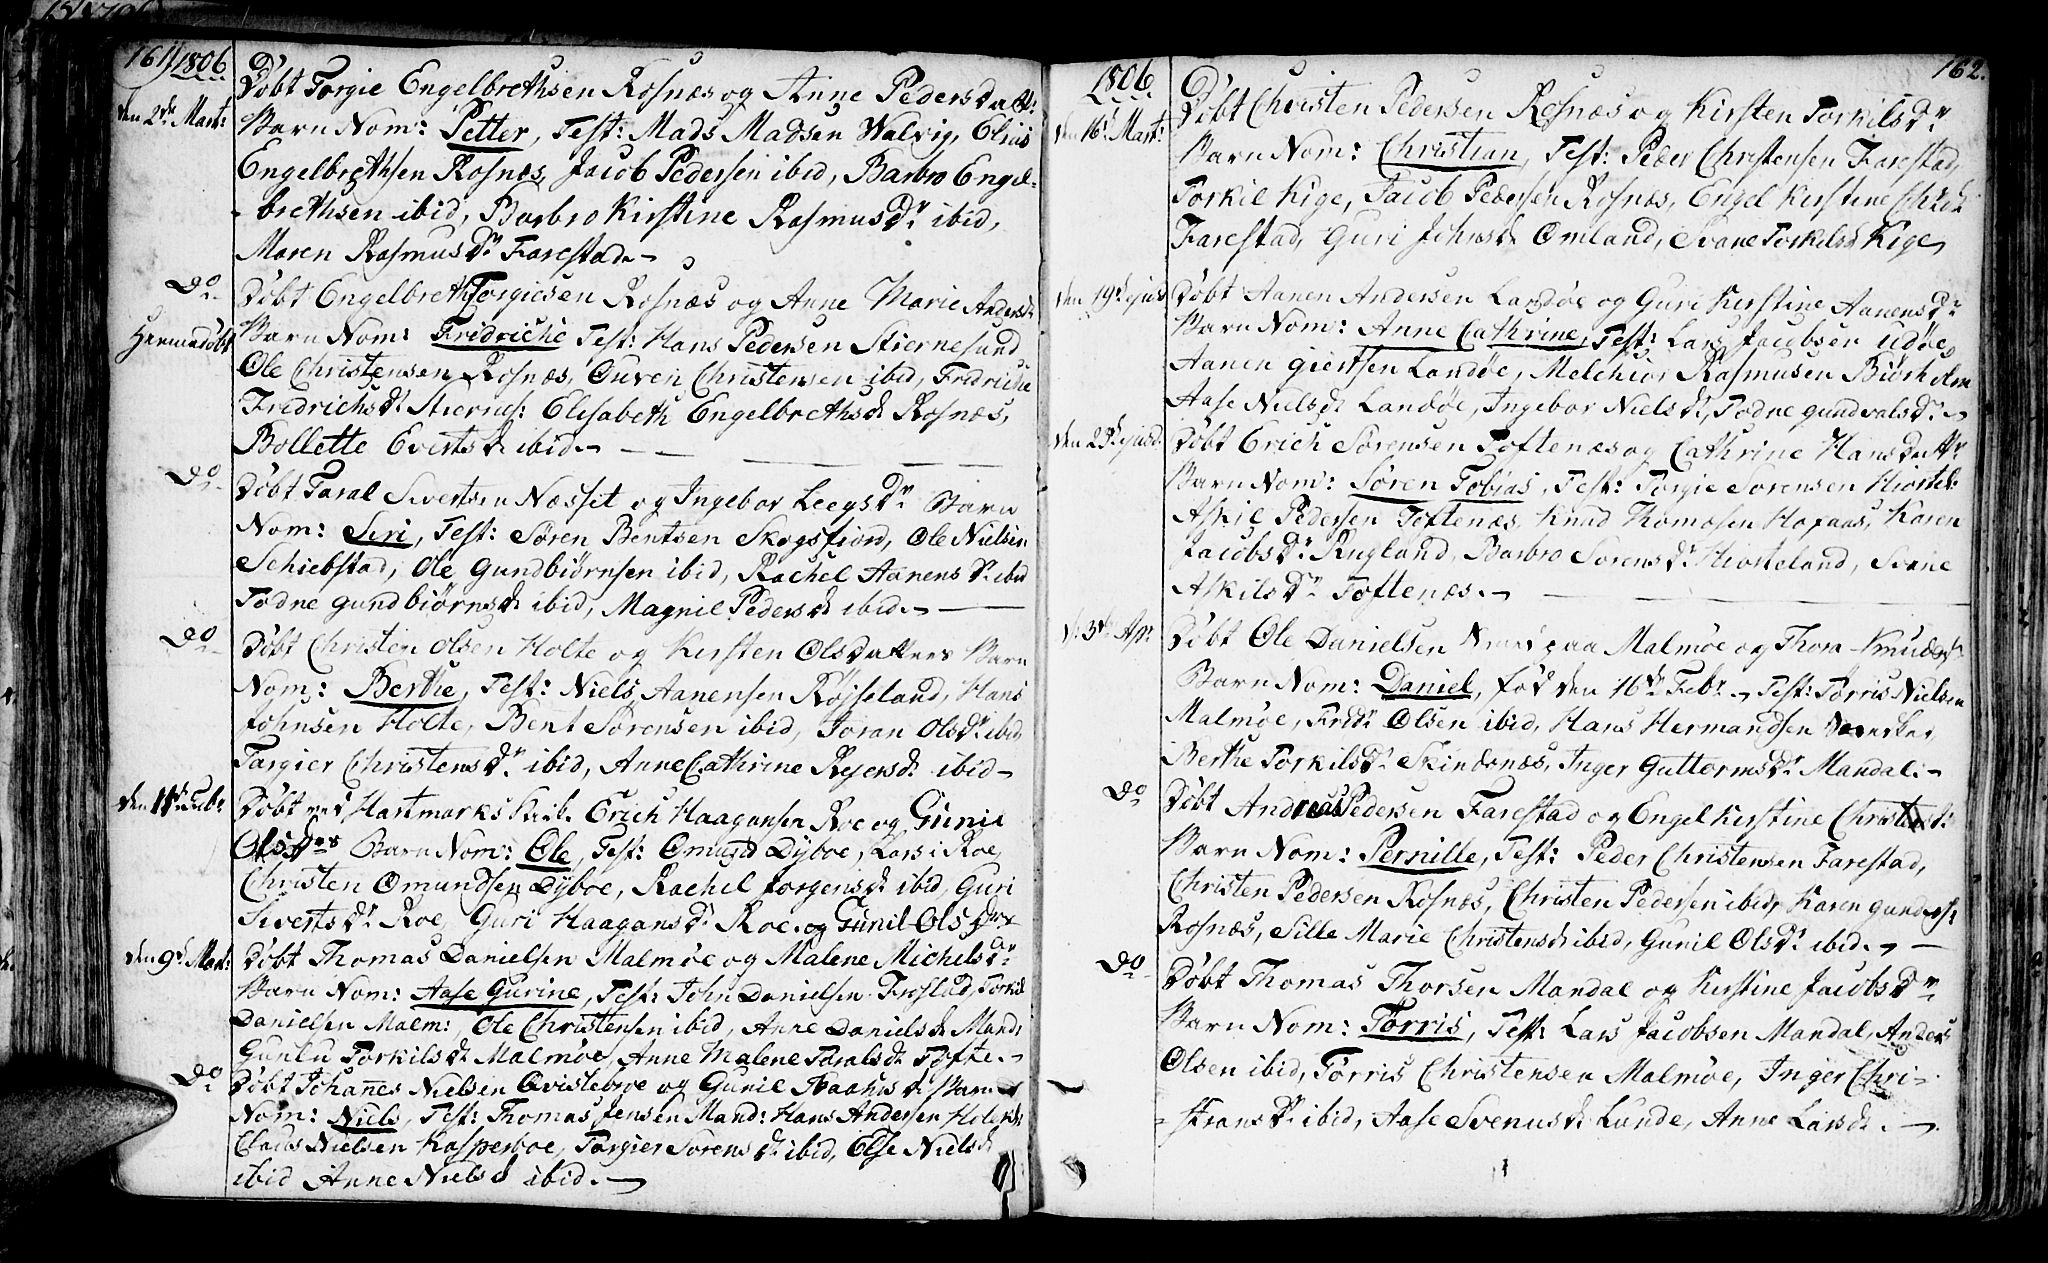 161) 1806
Døbt Torgie Engelbrethsen Rosnæs og Anne Pedersdatt:
den 2d. Mart: Barn Nom: Petter, Test: Mads Madsen Walvig, Elias
Engelbrethsen Rosnæs, Jacob Pedersen ibid, Barbro Engel-
-brethsen ibid, Barbro Kirstine Rasmusdr ibid,
Maren Rasmusdr Farestad.
Do. Døbt Engelbreth Torgiesen Rosnæs og Anne Marie Andersd.
Hiemmedøbt Barn Nom: Fridriche Test: Hans Pedersen Stiernesund
Ole Christensen Rosnæs, Ouven Christensen ibid, Fridriche
Fredrichsdr. Stiernes: Elisabeth Engelbrethsd. Rosnæs,
Bollette Evertsd. ibid.
Do. Døbt Taral Sivertsen Næsset og Ingebor Leegsdr Barn
Nom: Siri, Test: Søren Bentsen Skogsfiord, Ole Nielsen
Schiebstad, Ole Gundbiørnsen ibid, Rachel Aanensdr. ibid
Todne Gundbiørnsd. ibid, Magnil Pedersd. ibid.
Do. Døbt Christen Olsen Holte og Kirsten Olsdatters Barn
Nom: Berthe, Test: Niels Aanensen Røjseland, Hans
Johnsen Holte, Bent Sørensen ibid, Joran Olsdr. ibid,
Targier Christensdr. ibid, Anne Cathrine Rejersd. ibid
Døbt ved Hartmarks Kirke Erich Haagansen Roe og Gunil
Olsdrs Barn Nom: Ole, Test: Omund Dyboe, Lars i Roe,
Christen Omundsen Dyboe, Rachel Jorgensd. ibid, Guri
Sivertsdr. Roe, Guri Haagansdr. Roe. og Gunil Olsdr
den 9d. Mart: Døbt Thomas Danielsen Malmøe og Malene Michelsdr.
Barn Nom: Aase Gurine, Test: John Danielsen Frøstad, Torkil
Danielsen Malm:, Ole Christensen ibid, Anne Danielsd. Mand:
Torkilsd. Malmøe, Anne Malene Taralsd. Tofte.
Do Døbt Johannes Nielsen Qvisteboe og Gunil Barn
Nom: Niels, Test: Thomas Jensen Mand: Hans Andersen
Clads Nielsen Kasperboe, Targier Sørensd. ibid, Else Nielsd.
ibid Anne Nielsd ibid.
162.
1806
Døbt Christen Pedersen Rosnæs og Kirsten Torkilsdr
den 16d Mart: Barn Nom: Christian, Test: Peder Christensen Farestad,
Torkil Kige, Jacob Pedersen Rosnæs, Engel Kirstine
Farestad, Guri Johnsd. Omland, Svane Torkilsd. Kige
den 19d. ejusd Døbt Aanen Andersen Landøe og Guri Kirstine Aanensdr
Barn Nom: Anne Cathrine, Test: Lars Jacobsen Udøe
Aanen Giertsen Landøe, Melchior Rasmusen Biørholm
Aase Nielsd. Landøe, Ingebor Nielsdr, Todne Gundvalsdr.
den 23d. ejusd. Døbt Erich Sørensen Toftenæs og Cathrine Hansdattr
Barn Nom: Søren Tobias, Test: Torgie Sørensen Hiortel:
Askil Pedersen Toftenæs, Knud Thomasen Hofaas, Karen
Jacobsdr. Rugland, Barbro Sørensdr. Hiorteland, Svane
Askilsdr Toftenæs.
Døbt Ole Danielsen paa Malmøe og Thora Knudsd.
Barn Nom: Daniel, fød den 16d. Febr. Test: Torris Nielsen
Malmøe, Fridr. Olsen ibid, Hans Hermandsen
Berthe Torkilsdr. Skindsnæs, Inger Guttormsdr. Mandal:
Do Døbt Andreas Pedersen Farestad og Engel Kirstine Christensd:
Barn Nom: Pernille, Test: Peder Christensen Farestad,
Christen Pedersen Rosnæs, Christen Pedersen ibid, Karen Gundersd.
Rosnæs, Sille Marie Christensd. ibid, Gunil Olsdr. ibid.
Do. Døbt Thomas Thorsen Mandal og Kirstine Jacobsdr
Barn Nom: Torris, Test: Lars Jacobsen Mandal, Anders
Olsen ibid, Tørris Christensen Malmøe, Inger Chri-
-stiansdr. ibid, Aase Svenusd. Lunde, Anne Larsd.